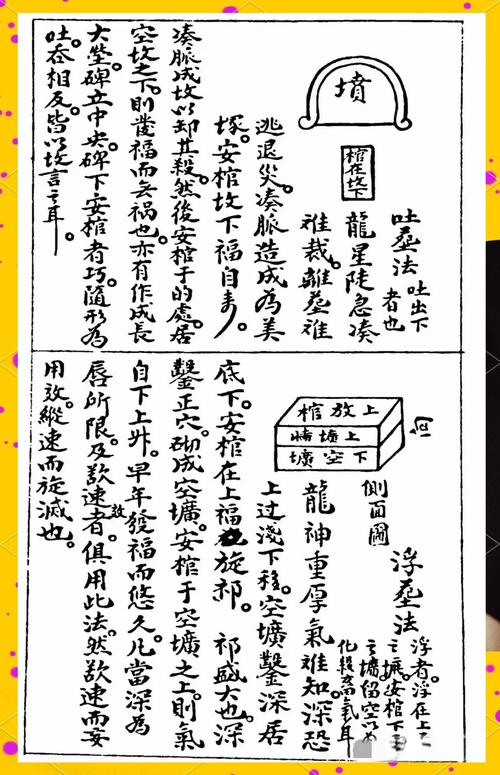 墳
棺在坟下
吐葬法
吐出下
者也
龍星陡急凑
难裁。離葬难
逃退災。凑脈造成為美
塚。安棺坟下福自寿。
凑脈成坟以却其殺。然後安棺于的處。居
空坟之下。則發福而无祸也。亦有作成長
大茔。碑立中央。碑下安棺者巧。隨形為
吐吞相反。皆以坟言之耳。
上放棺
上壙
下空壙
側面圖
浮葬法
浮者。浮在上
安棺下
之壙留空以
化殺當氣耳
龍神重厚氣难知。深恐
上过淺下移。空壙鑿深居
底下。安棺在上福旋祁。祁盛大也。深
鑿正穴。砌成空壙。安棺于空壙之上。則氣
自下上升。早年發福而悠久。凡當深為
唇所限。及欲速效者。俱用此法。然欲速而妄
用效。縱速而旋滅也。